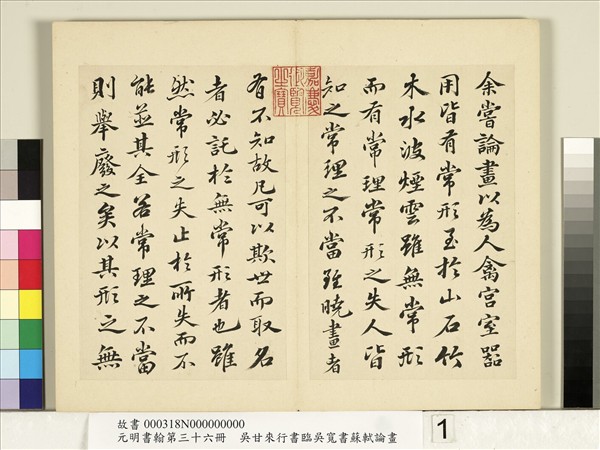 余嘗論畫以為人禽宮室器
用皆有常形至於山石竹
木水波煙雲雖無常形
而有常理常形之失人皆
知之常理之不當雖曉畫者
嘉慶御覽之寶
有不知故凡可以欺世而取名
者必託於無常形者也雖
然常形之失止於所失而不
能並其全若常理之不當
則舉廢之矣以其形之無
故書 000318N000000000
元明書翰第三十六冊　吳甘來行書臨吳寬書蘇軾論畫
1